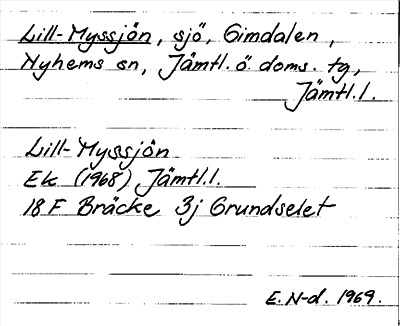 Lill-Myssjön, sjö, Gimdalen,
Nyhems sn, Jämtl. ö. doms. tg,
Jämtl.l.
Lill-Myssjön
Ek (1968) Jämtl.l.
18 F Bräcke 3j Grundselet
E. N-d. 1969.